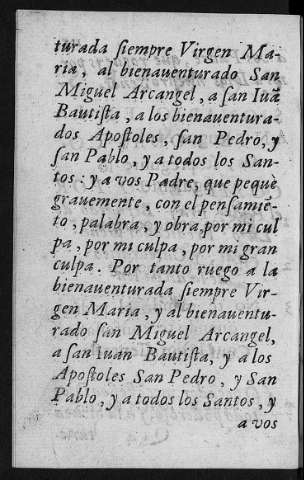 turada siempre Virgen Ma-
ria, al bienauenturado San
Miguel Arcangel, a san Iuã
Bautista, a los bienauentura-
dos Apostoles, san Pedro, y
san Pablo, y a todos los San-
tos: y a vos Padre, que pequè
grauemente, con el pensamiē-
to, palabra, y obra, por mi cul
pa, por mi culpa, por mi gran
culpa. Por tanto ruego a la
bienauenturada siempre Vir-
gen Maria, y al bienauentu-
rado san Miguel Arcangel,
a san Iuan Bautista, y a los
Apostoles San Pedro, y San
Pablo, y a todos los Santos, y
a vos